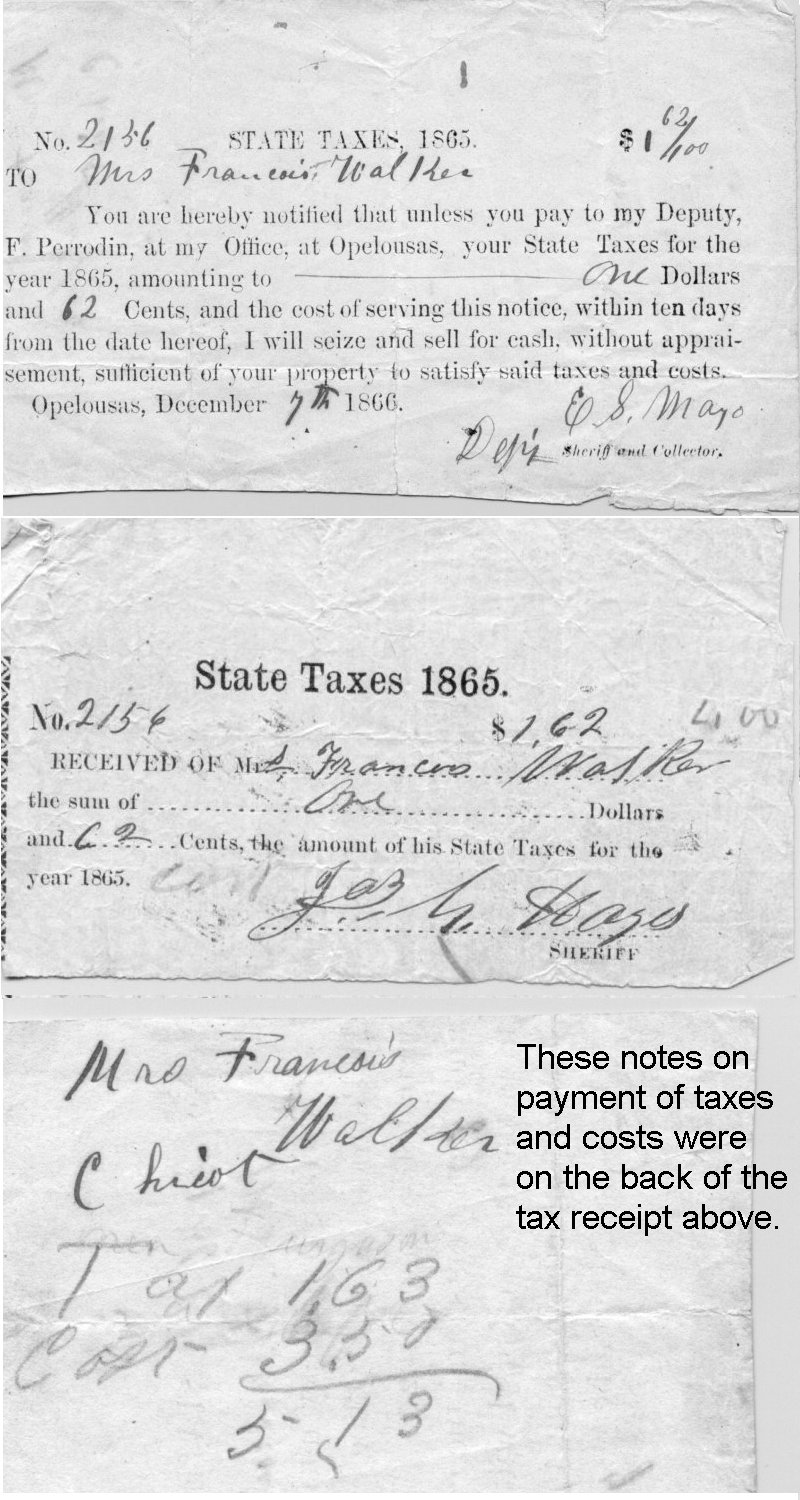 No. 2156 STATE TAXES, 1865. $ 1 62/100
TO Mrs Francois Walker
You are hereby notified that unless you pay to my Deputy,
F. Perrodin, at my Office, at Opelousas, your State Taxes for the
year 1865, amounting to One Dollars
and 62 Cents, and the cost of serving this notice, within ten days
from the date hereof, I will seize and sell for cash, without apprai-
sement, sufficient of your property to satisfy said taxes and costs.
Opelousas, December 7th 1866.
E. S. Mayo
Depy Sheriff and Collector.
State Taxes 1865.
No. 2156 $ 1,62 4,00
RECEIVED OF Mrs. Francois Walker
the sum of One Dollars
and 62 Cents, the amount of his State Taxes for the
year 1865. cost
Jas G. Hayes
SHERIFF
Mrs Francois
Walker
Chicot
These notes on
payment of taxes
and costs were
on the back of the
tax receipt above.
Tax 1,63
Cost 3.50
5,13